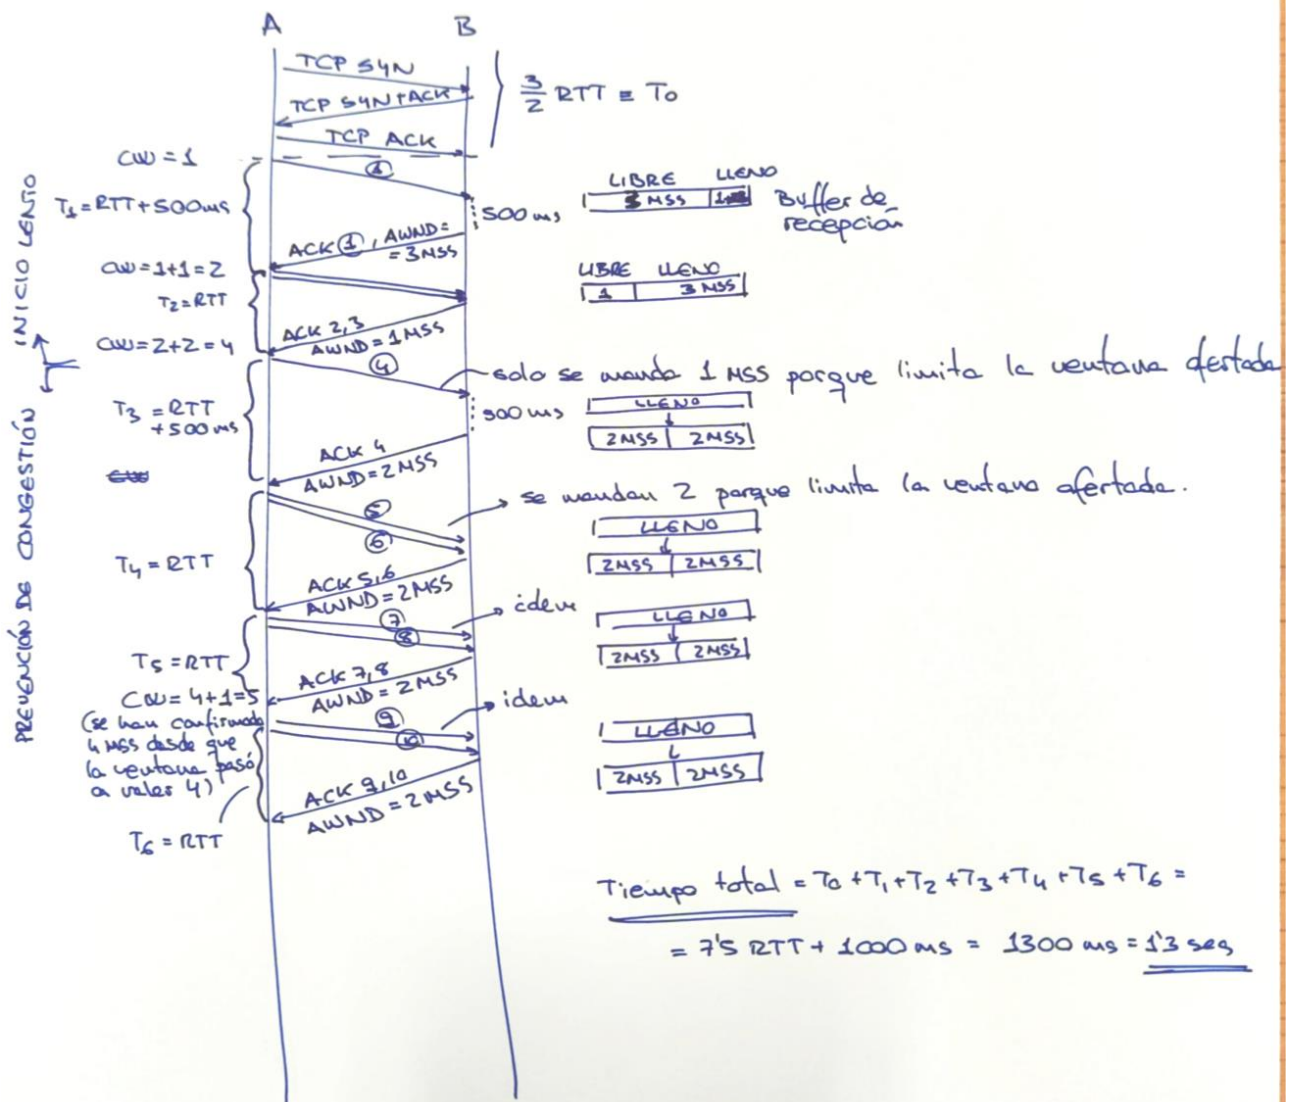 A
B
TCP SYN
TCP SYN+ACK
TCP ACK
3/2 RTT ≡ T0
CW = 1
1
T1 = RTT + 500ms
500 ms
LIBRE LLENO
3 MSS
Buffer de
recepción
ACK 1, AWND =
= 3MSS
INICIO LENTO
CW = 1+1 = 2
T2 = RTT
LIBRE LLENO
1 3 MSS
ACK 2,3
AWND = 1MSS
CW = 2+2 = 4
4
solo se manda 1 MSS porque limita la ventana ofertada
T3 = RTT
+ 500 ms
500 ms
LLENO
2MSS 2MSS
ACK 4
AWND = 2MSS
PREVENCIÓN DE CONGESTIÓN
5
6
se mandan 2 porque limita la ventana ofertada.
LLENO
2MSS 2MSS
T4 = RTT
ACK 5,6
AWND = 2MSS
7
8
idem
LLENO
2MSS 2MSS
T5 = RTT
ACK 7,8
AWND = 2MSS
CW = 4+1=5
(se han confirmado
4 MSS desde que
la ventana pasó
a valer 4)
9
10
idem
LLENO
2MSS 2MSS
ACK 9,10
AWND = 2MSS
T6 = RTT
Tiempo total = T0 + T1 + T2 + T3 + T4 + T5 + T6 =
= 7'5 RTT + 1000 ms = 1300 ms = 1'3 seg